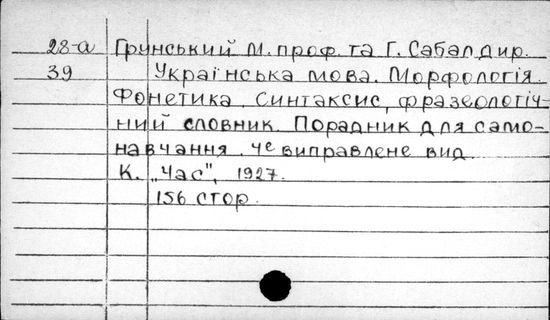 28-а Грунський М. проф. та Г. Сабалдир.
39 Українська мова. Морфологія.
Фонетика. Синтаксис, фразеологіч-
ний словник. Порадник для само-
навчання. Че виправлене вид.
К. „Час", 1927.
156 стор.